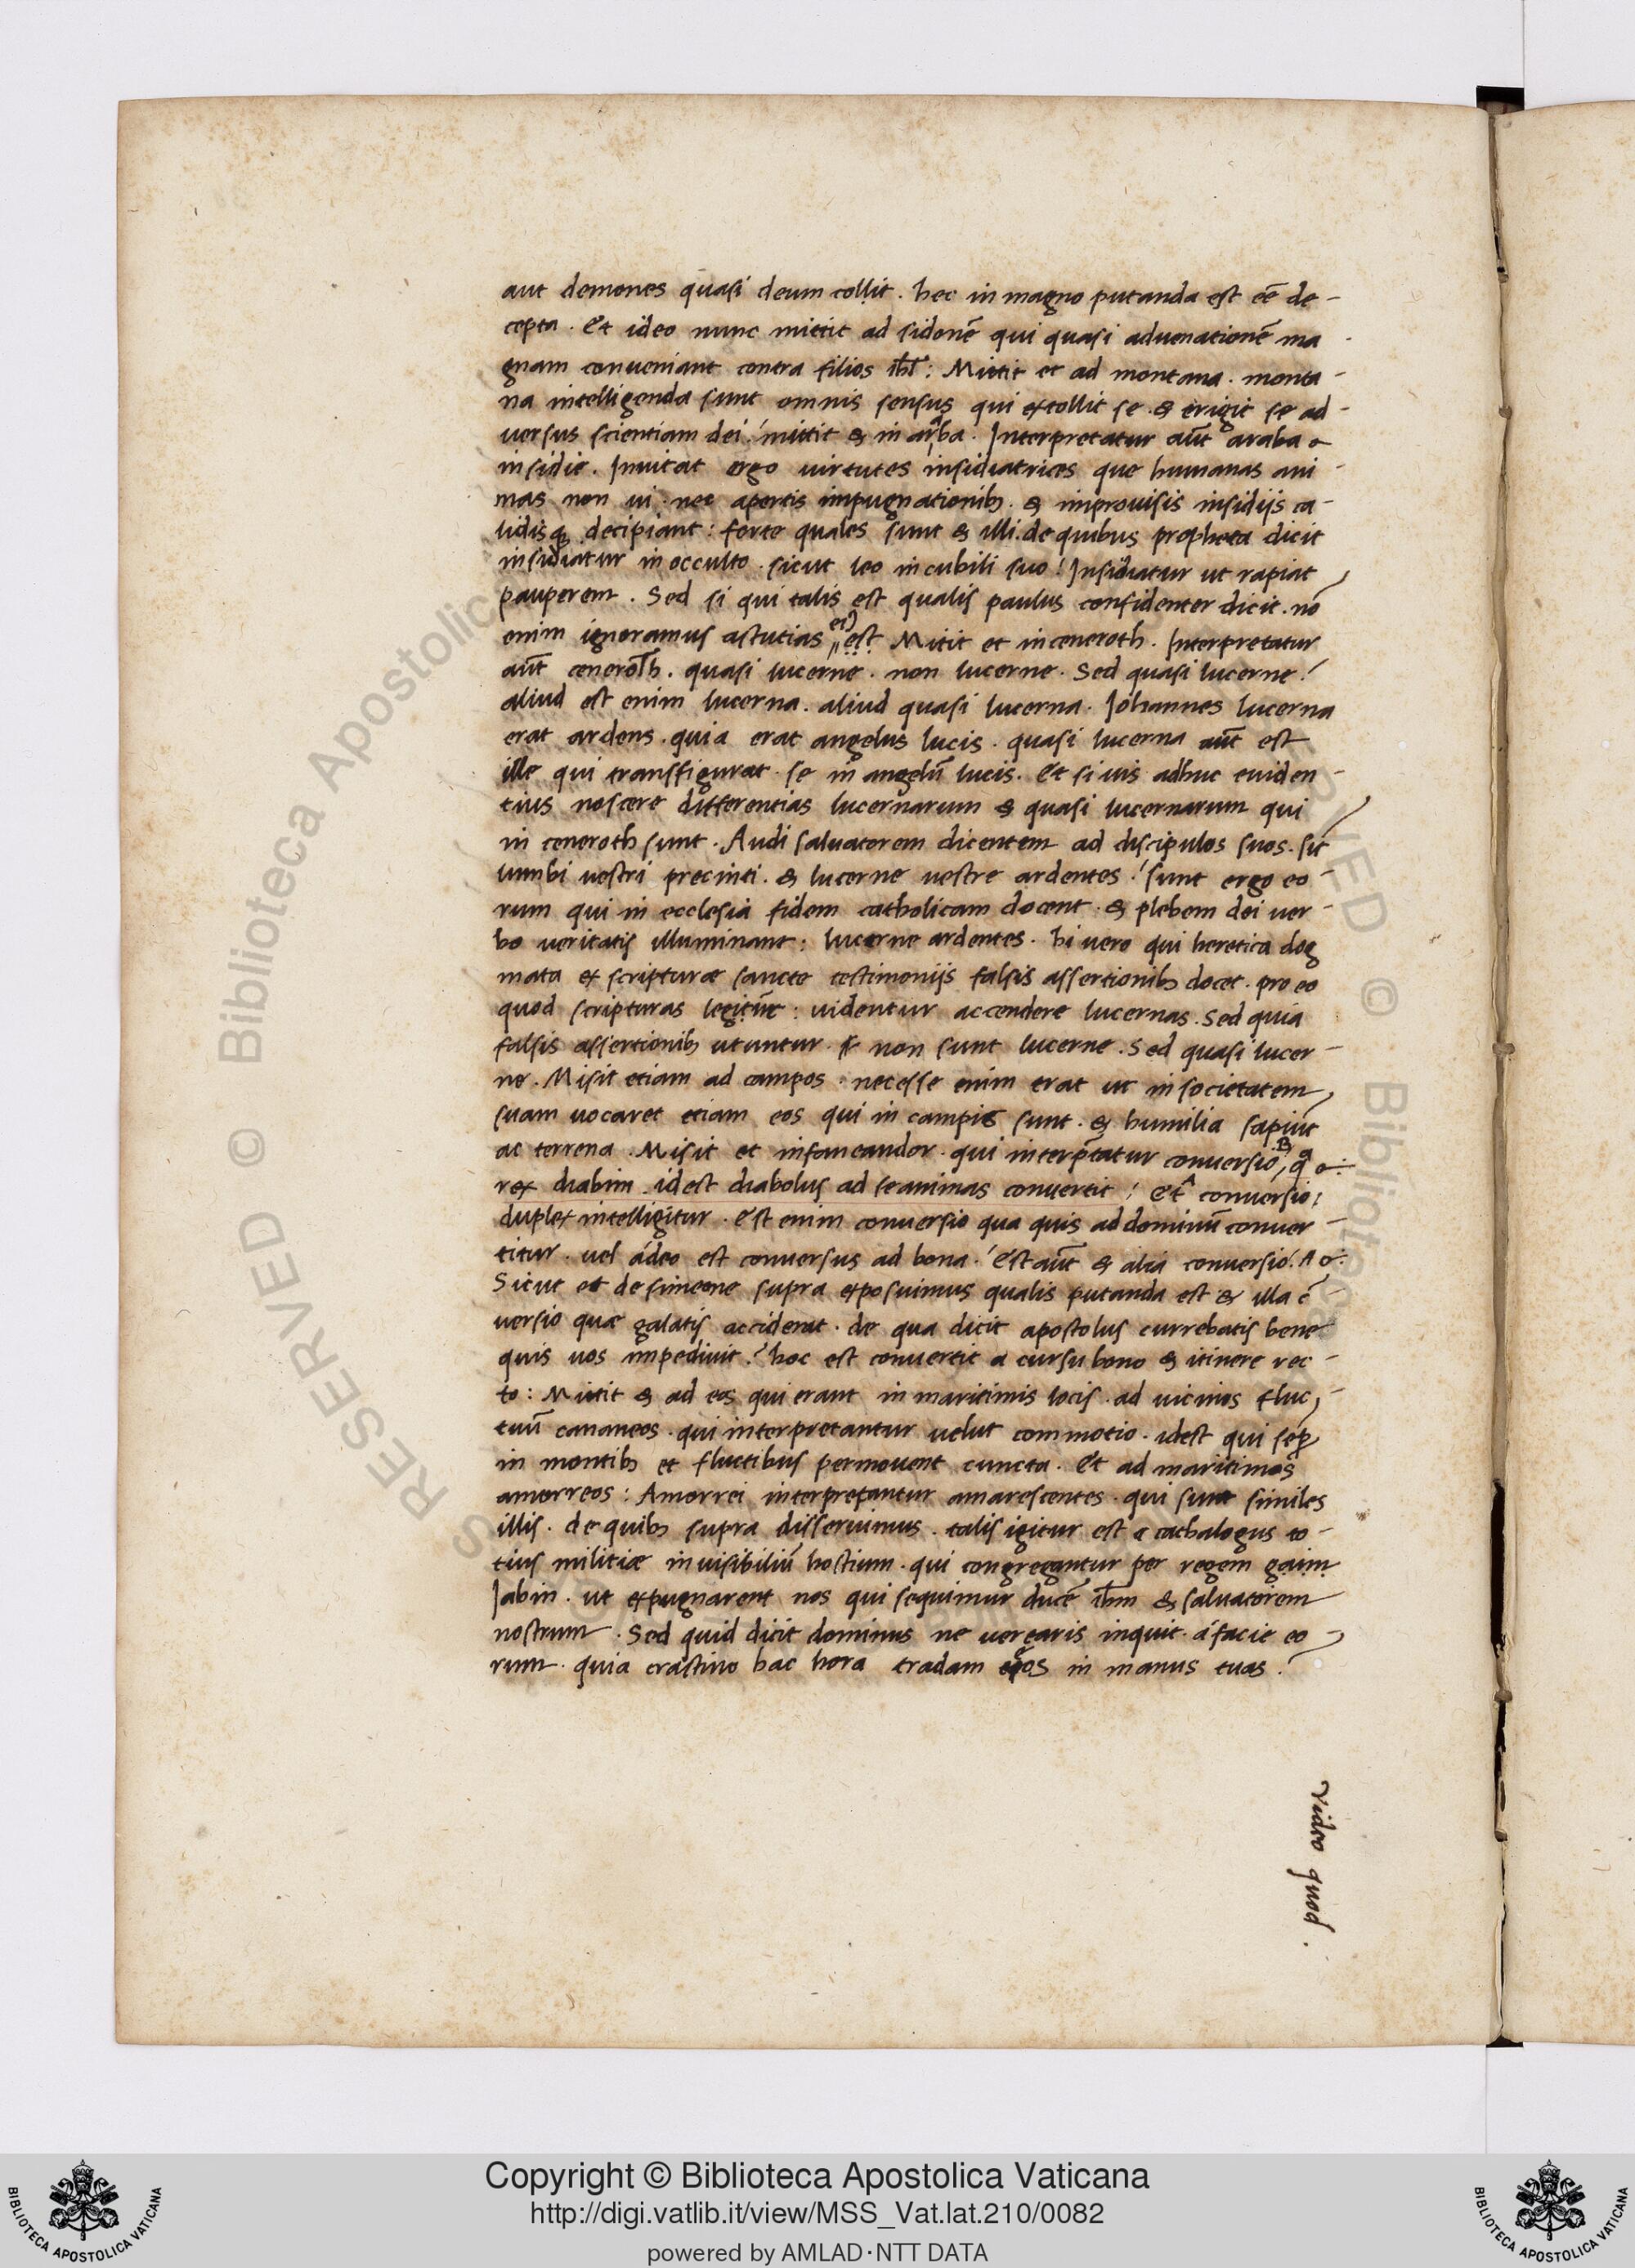 aut demones quasi deum collit . hec in magno putanda est eē de-
cepta . Et ideo nunc mittit ad sidonē qui quasi aduenationē ma
gnam conueniant contra filios ihl̄ : Mittit et ad montana . monta-
na intelligenda sunt omnis sensus qui extollit se . & erigit se ad-
uersus scientiam dei . mittit & in araba . Interpretatur aūt araba
insidie . Inuitat ergo uirtutes insidiatrices que humanas ani-
mas non ui . nec apertis impugnationib; . & improuisis insidijs ca-
lidisq; decipiant : forte quales sunt & illi . de quibus propheta dicit
insidiatur in occulto . sicut leo in cubili suo ! Insidiatur ut rapiat
pauperem . Sed si qui talis est qualis paulus confidenter dicit . nō
enim ignoramus astutias ei) est Mitit et in ceneroth . Interpretatur
aūt ceneroth . quasi lucerne . non lucerne . Sed quasi lucerne !
aliud est enim lucerna . aliud quasi lucerna . Iohannes lucerna
erat ardens . quia erat angelus lucis . quasi lucerna aūt est
ille qui transfigurat se in angelū lucis . Et si uis adhuc euiden-
tius noscere differentias lucernarum & quasi lucernarum qui
in ceneroth sunt . Audi saluatorem dicentem ad discipulos suos . sit
lumbi uestri precinti . & lucerne uestre ardentes ! sunt ergo eo-
rum qui in ecclesia fidem catholicam docent . & plebem dei uer-
bo ueritatis illuminant : lucerne ardentes . hi uero qui heretica dog
mata et scripturæ sancte testimonijs falsis assertionib; docet . pro eo
quod scripturas legūnt : uidentur accendere lucernas . Sed quia
falsis assertionib; utuntur . non sunt lucerne . Sed quasi lucer-
ne . Misit etiam ad campos . necesse enim erat ut in societatem
suam uocaret etiam eos qui in campis sunt . & humilia sapiūt
ac terrena . Misit et infaneandor . qui interp̄tatur conuersio B
rex diabim . idest diabolus ad se animas conuertit ! Et A conuersio :
duplex intelligitur . Est enim conuersio qua quis ad dominū conuer-
titur . uel adeo est conuersus ad bona . Est aūt & alia conuersio .
Sicut et de simeone supra exposuimus qualis putanda est & illa c̄-
uersio quæ galatis acciderat . de qua dicit apostolus currebatis bene
quis uos impediuit ? hoc est conuertit a cursu bono & itinere rec-
to : Mittit & ad eos qui erant in maritimis locis . ad uicinos fluc-
tuū cananeos . qui interpretantur uelut commotio . idest qui sep̄
in montib; et fluctibus permouent cuncta . Et ad maritimos
amorreos : Amorrei interpretantur amarescentes . qui sunt similes
illis . de quib; supra disseruimus . talis igitur est cathalogus to-
tius militiæ inuisibiliū hostium . qui congregantur per regem
Iabin . ut expugnarent nos qui sequimur ducē ih̄m & saluatorem
nostrum . Sed quid dicit dominus ne uerearis inquit a facie eo
rum . quia crastino hac hora tradam eos in manus tuas .
Video quod .
RESERVED © Biblioteca Apostolica
RESERVED © Biblioteca
BIBLIOTECA APOSTOLICA VATICANA
Copyright © Biblioteca Apostolica Vaticana
http://digi.vatlib.it/view/MSS_Vat.lat.210/0082
powered by AMLAD·NTT DATA
BIBLIOTECA APOSTOLICA VATICANA